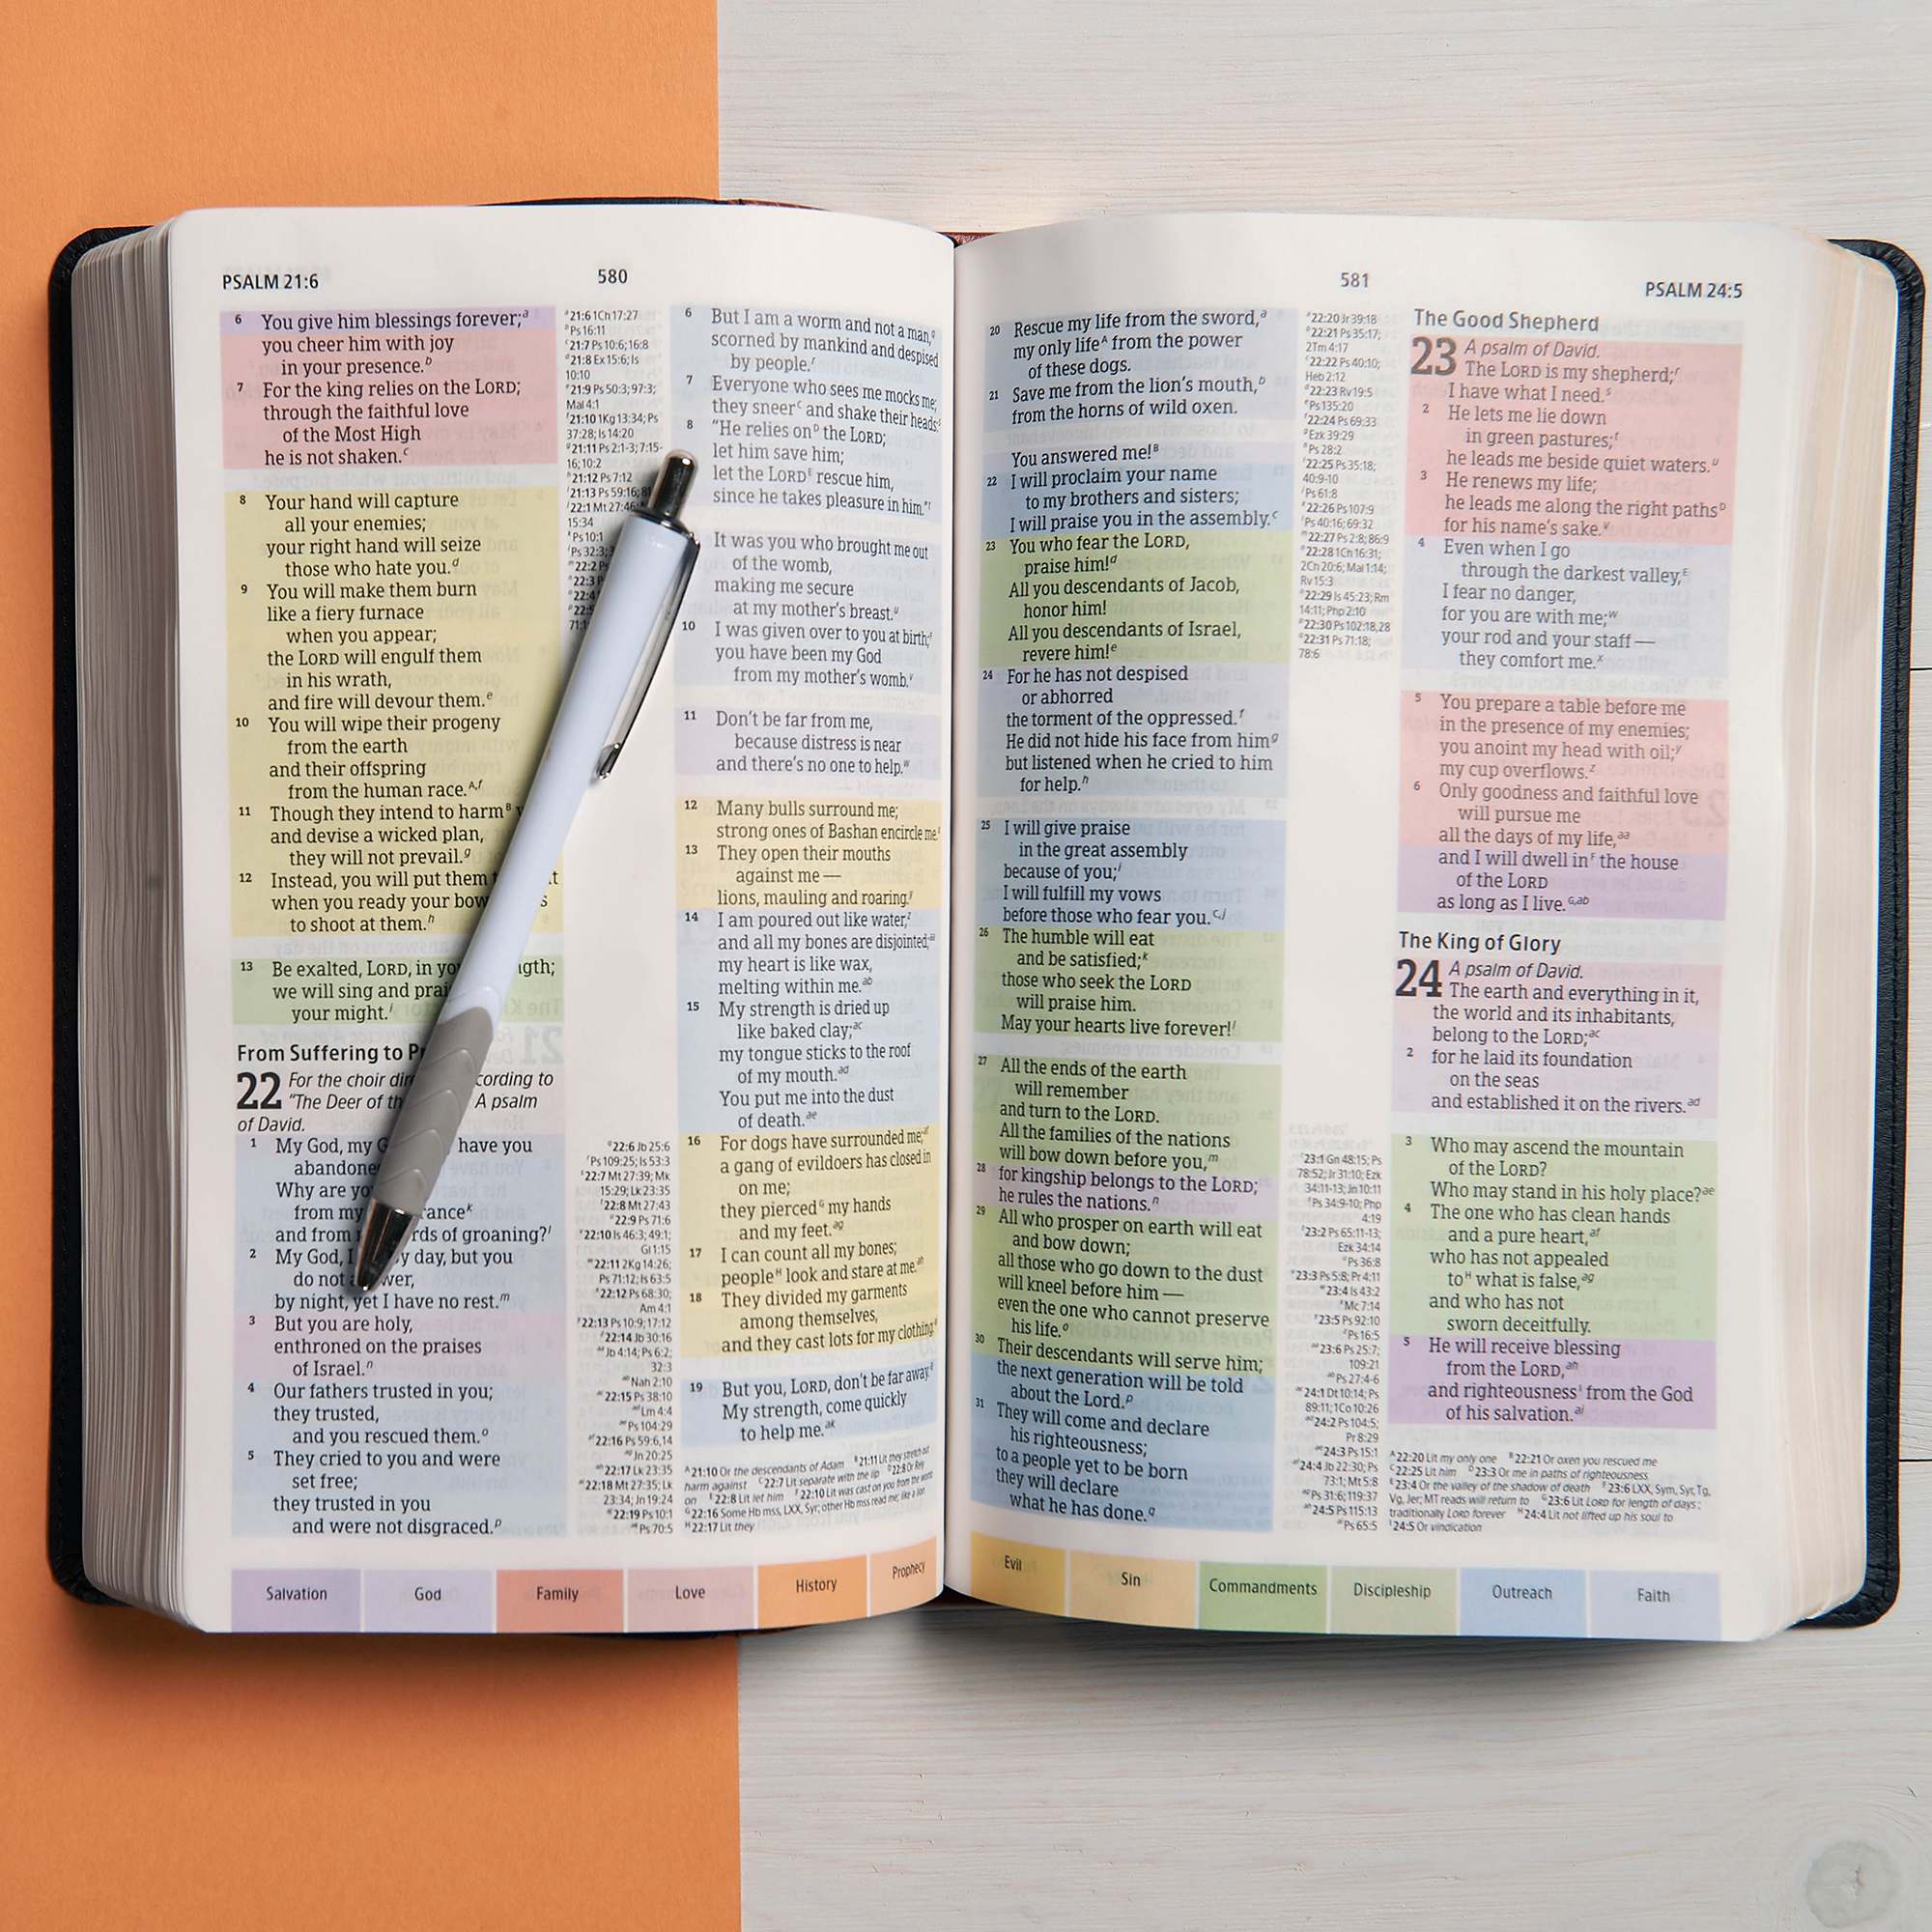 PSALM 21:6
580
6 You give him blessings forever;a
you cheer him with joy
in your presence.b
7 For the king relies on the LORD;
through the faithful love
of the Most High
he is not shaken.c
8 Your hand will capture
all your enemies;
your right hand will seize
those who hate you.d
9 You will make them burn
like a fiery furnace
when you appear;
the LORD will engulf them
in his wrath,
and fire will devour them.e
10 You will wipe their progeny
from the earth
and their offspring
from the human race.A,f
11 Though they intend to harmB
and devise a wicked plan,
they will not prevail.g
12 Instead, you will put them
when you ready your
to shoot at them.h
13 Be exalted, LORD, in
we will sing and
your might.i
From Suffering to
22 For the choir
"The Deer of A psalm
of David.
1 My God, my have you
Why are
from my
and from of groaning?l
2 My God, I day, but you
do not
by night, yet I have no rest.m
3 But you are holy,
enthroned on the praises
of Israel.n
4 Our fathers trusted in you;
they trusted,
and you rescued them.o
5 They cried to you and were
set free;
they trusted in you
and were not disgraced.p
a21:6 1Ch 17:27
bPs 16:11
c21:7 Ps 10:6; 16:8
d21:8 Ex 15:6; Is
10:10
e21:9 Ps 50:3; 97:3;
Mal 4:1
f21:10 1Kg 13:34; Ps
37:28; Is 14:20
g21:11 Ps 2:1-3; 7:15-
16; 10:2
h21:12 Ps 7:12
i21:13 Ps 59:16;
22:1 Mt 27:46;
15:34
Ps 10:1
q22:6 Jb 25:6
rPs 109:25; Is 53:3
s22:7 Mt 27:39; Mk
15:29; Lk 23:35
t22:8 Mt 27:43
u22:9 Ps 71:6
v22:10 Is 46:3; 49:1;
Gl 1:15
w22:11 2Kg 14:26;
Ps 71:12; Is 63:5
x22:12 Ps 68:30;
Am 4:1
y22:13 Ps 10:9; 17:12
z22:14 Jb 30:16
aaJb 4:14; Ps 6:2;
32:3
abNah 2:10
ac22:15 Ps 38:10
adLm 4:4
aePs 104:29
af22:16 Ps 59:6,14
agJn 20:25
ah22:17 Lk 23:35
ai22:18 Mt 27:35; Lk
23:34; Jn 19:24
aj22:19 Ps 10:1
akPs 70:5
6 But I am a worm and not a man,q
scorned by mankind and despised
by people.r
7 Everyone who sees me mocks me;
they sneerC and shake their heads:s
8 "He relies onD the LORD;
let him save him;
let the LORDE rescue him,
since he takes pleasure in him."t
It was you who brought me out
of the womb,
making me secure
at my mother's breast.u
10 I was given over to you at birth;F
you have been my God
from my mother's womb.v
11 Don't be far from me,
because distress is near
and there's no one to help.w
12 Many bulls surround me;
strong ones of Bashan encircle me.x
13 They open their mouths
against me —
lions, mauling and roaring.y
14 I am poured out like water,z
and all my bones are disjointed;aa
my heart is like wax,
melting within me.ab
15 My strength is dried up
like baked clay;ac
my tongue sticks to the roof
of my mouth.ad
You put me into the dust
of death.ae
16 For dogs have surrounded me;af
a gang of evildoers has closed in
on me;
they piercedG my hands
and my feet.ag
17 I can count all my bones;
peopleH look and stare at me.ah
18 They divided my garments
among themselves,
and they cast lots for my clothing.ai
19 But you, LORD, don't be far away.aj
My strength, come quickly
to help me.ak
A21:10 Or the descendants of Adam B21:11 Lit they stretch out
harm against C22:7 Lit separate with the lip D22:8 Or Rely
on E22:8 Lit let him F22:10 Lit was cast on you from the womb
G22:16 Some Hb mss, LXX, Syr; other Hb mss read me; like a lion
H22:17 Lit they
Salvation God Family Love History Prophecy
581
PSALM 24:5
20 Rescue my life from the sword,a
my only lifeA from the power
of these dogs.
21 Save me from the lion's mouth,b
from the horns of wild oxen.
You answered me!B
22 I will proclaim your name
to my brothers and sisters;
I will praise you in the assembly.c
23 You who fear the LORD,
praise him!d
All you descendants of Jacob,
honor him!
All you descendants of Israel,
revere him!e
24 For he has not despised
or abhorred
the torment of the oppressed.f
He did not hide his face from himg
but listened when he cried to him
for help.h
25 I will give praise
in the great assembly
because of you;i
I will fulfill my vows
before those who fear you.C,j
26 The humble will eat
and be satisfied;k
those who seek the LORD
will praise him.
May your hearts live forever!l
27 All the ends of the earth
will remember
and turn to the LORD.
All the families of the nations
will bow down before you,m
28 for kingship belongs to the LORD;
he rules the nations.n
29 All who prosper on earth will eat
and bow down;
all those who go down to the dust
will kneel before him —
even the one who cannot preserve
his life.o
30 Their descendants will serve him;
the next generation will be told
about the Lord.p
31 They will come and declare
his righteousness;
to a people yet to be born
they will declare
what he has done.q
a22:20 Jr 39:18
b22:21 Ps 35:17;
2Tm 4:17
c22:22 Ps 40:10;
Heb 2:12
d22:23 Rv 19:5
ePs 135:20
f22:24 Ps 69:33
gEzk 39:29
hPs 28:2
i22:25 Ps 35:18;
40:9-10
jPs 61:8
k22:26 Ps 107:9
lPs 40:16; 69:32
m22:27 Ps 2:8; 86:9
n22:28 1Ch 16:31;
2Ch 20:6; Mal 1:14;
Rv 15:3
o22:29 Is 45:23; Rm
14:11; Php 2:10
p22:30 Ps 102:18,28
q22:31 Ps 71:18;
78:6
r23:1 Gn 48:15; Ps
78:52; Jr 31:10; Ezk
34:11-13; Jn 10:11
sPs 34:9-10; Php
4:19
t23:2 Ps 65:11-13;
Ezk 34:14
uPs 36:8
v23:3 Ps 5:8; Pr 4:11
w23:4 Is 43:2
xMc 7:14
y23:5 Ps 92:10
zPs 16:5
aa23:6 Ps 25:7;
109:21
abPs 27:4-6
ac24:1 Dt 10:14; Ps
89:11; 1Co 10:26
ad24:2 Ps 104:5;
Pr 8:29
ae24:3 Ps 15:1
af24:4 Jb 22:30; Ps
73:1; Mt 5:8
agPs 31:6; 119:37
ah24:5 Ps 115:13
aiPs 65:5
The Good Shepherd
23 A psalm of David.
The LORD is my shepherd;r
I have what I need.s
2 He lets me lie down
in green pastures;t
he leads me beside quiet waters.u
3 He renews my life;
he leads me along the right pathsD
for his name's sake.v
4 Even when I go
through the darkest valley,E
I fear no danger,
for you are with me;w
your rod and your staff —
they comfort me.x
5 You prepare a table before me
in the presence of my enemies;
you anoint my head with oil;y
my cup overflows.z
6 Only goodness and faithful love
will pursue me
all the days of my life,aa
and I will dwell inF the house
of the LORD
as long as I live.G,ab
The King of Glory
24 A psalm of David.
The earth and everything in it,
the world and its inhabitants,
belong to the LORD;ac
2 for he laid its foundation
on the seas
and established it on the rivers.ad
3 Who may ascend the mountain
of the LORD?
Who may stand in his holy place?ae
4 The one who has clean hands
and a pure heart,af
who has not appealed
toH what is false,ag
and who has not
sworn deceitfully.
5 He will receive blessing
from the LORD,ah
and righteousnessI from the God
of his salvation.ai
A22:20 Lit my only one B22:21 Or oxen you rescued me
C22:25 Lit him D23:3 Or me in paths of righteousness
E23:4 Or the valley of the shadow of death F23:6 LXX, Sym, Syr, Tg,
Vg, Jer; MT reads will return to G23:6 Lit LORD for length of days;
traditionally LORD forever H24:4 Lit not lifted up his soul to
I24:5 Or vindication
Evil Sin Commandments Discipleship Outreach Faith